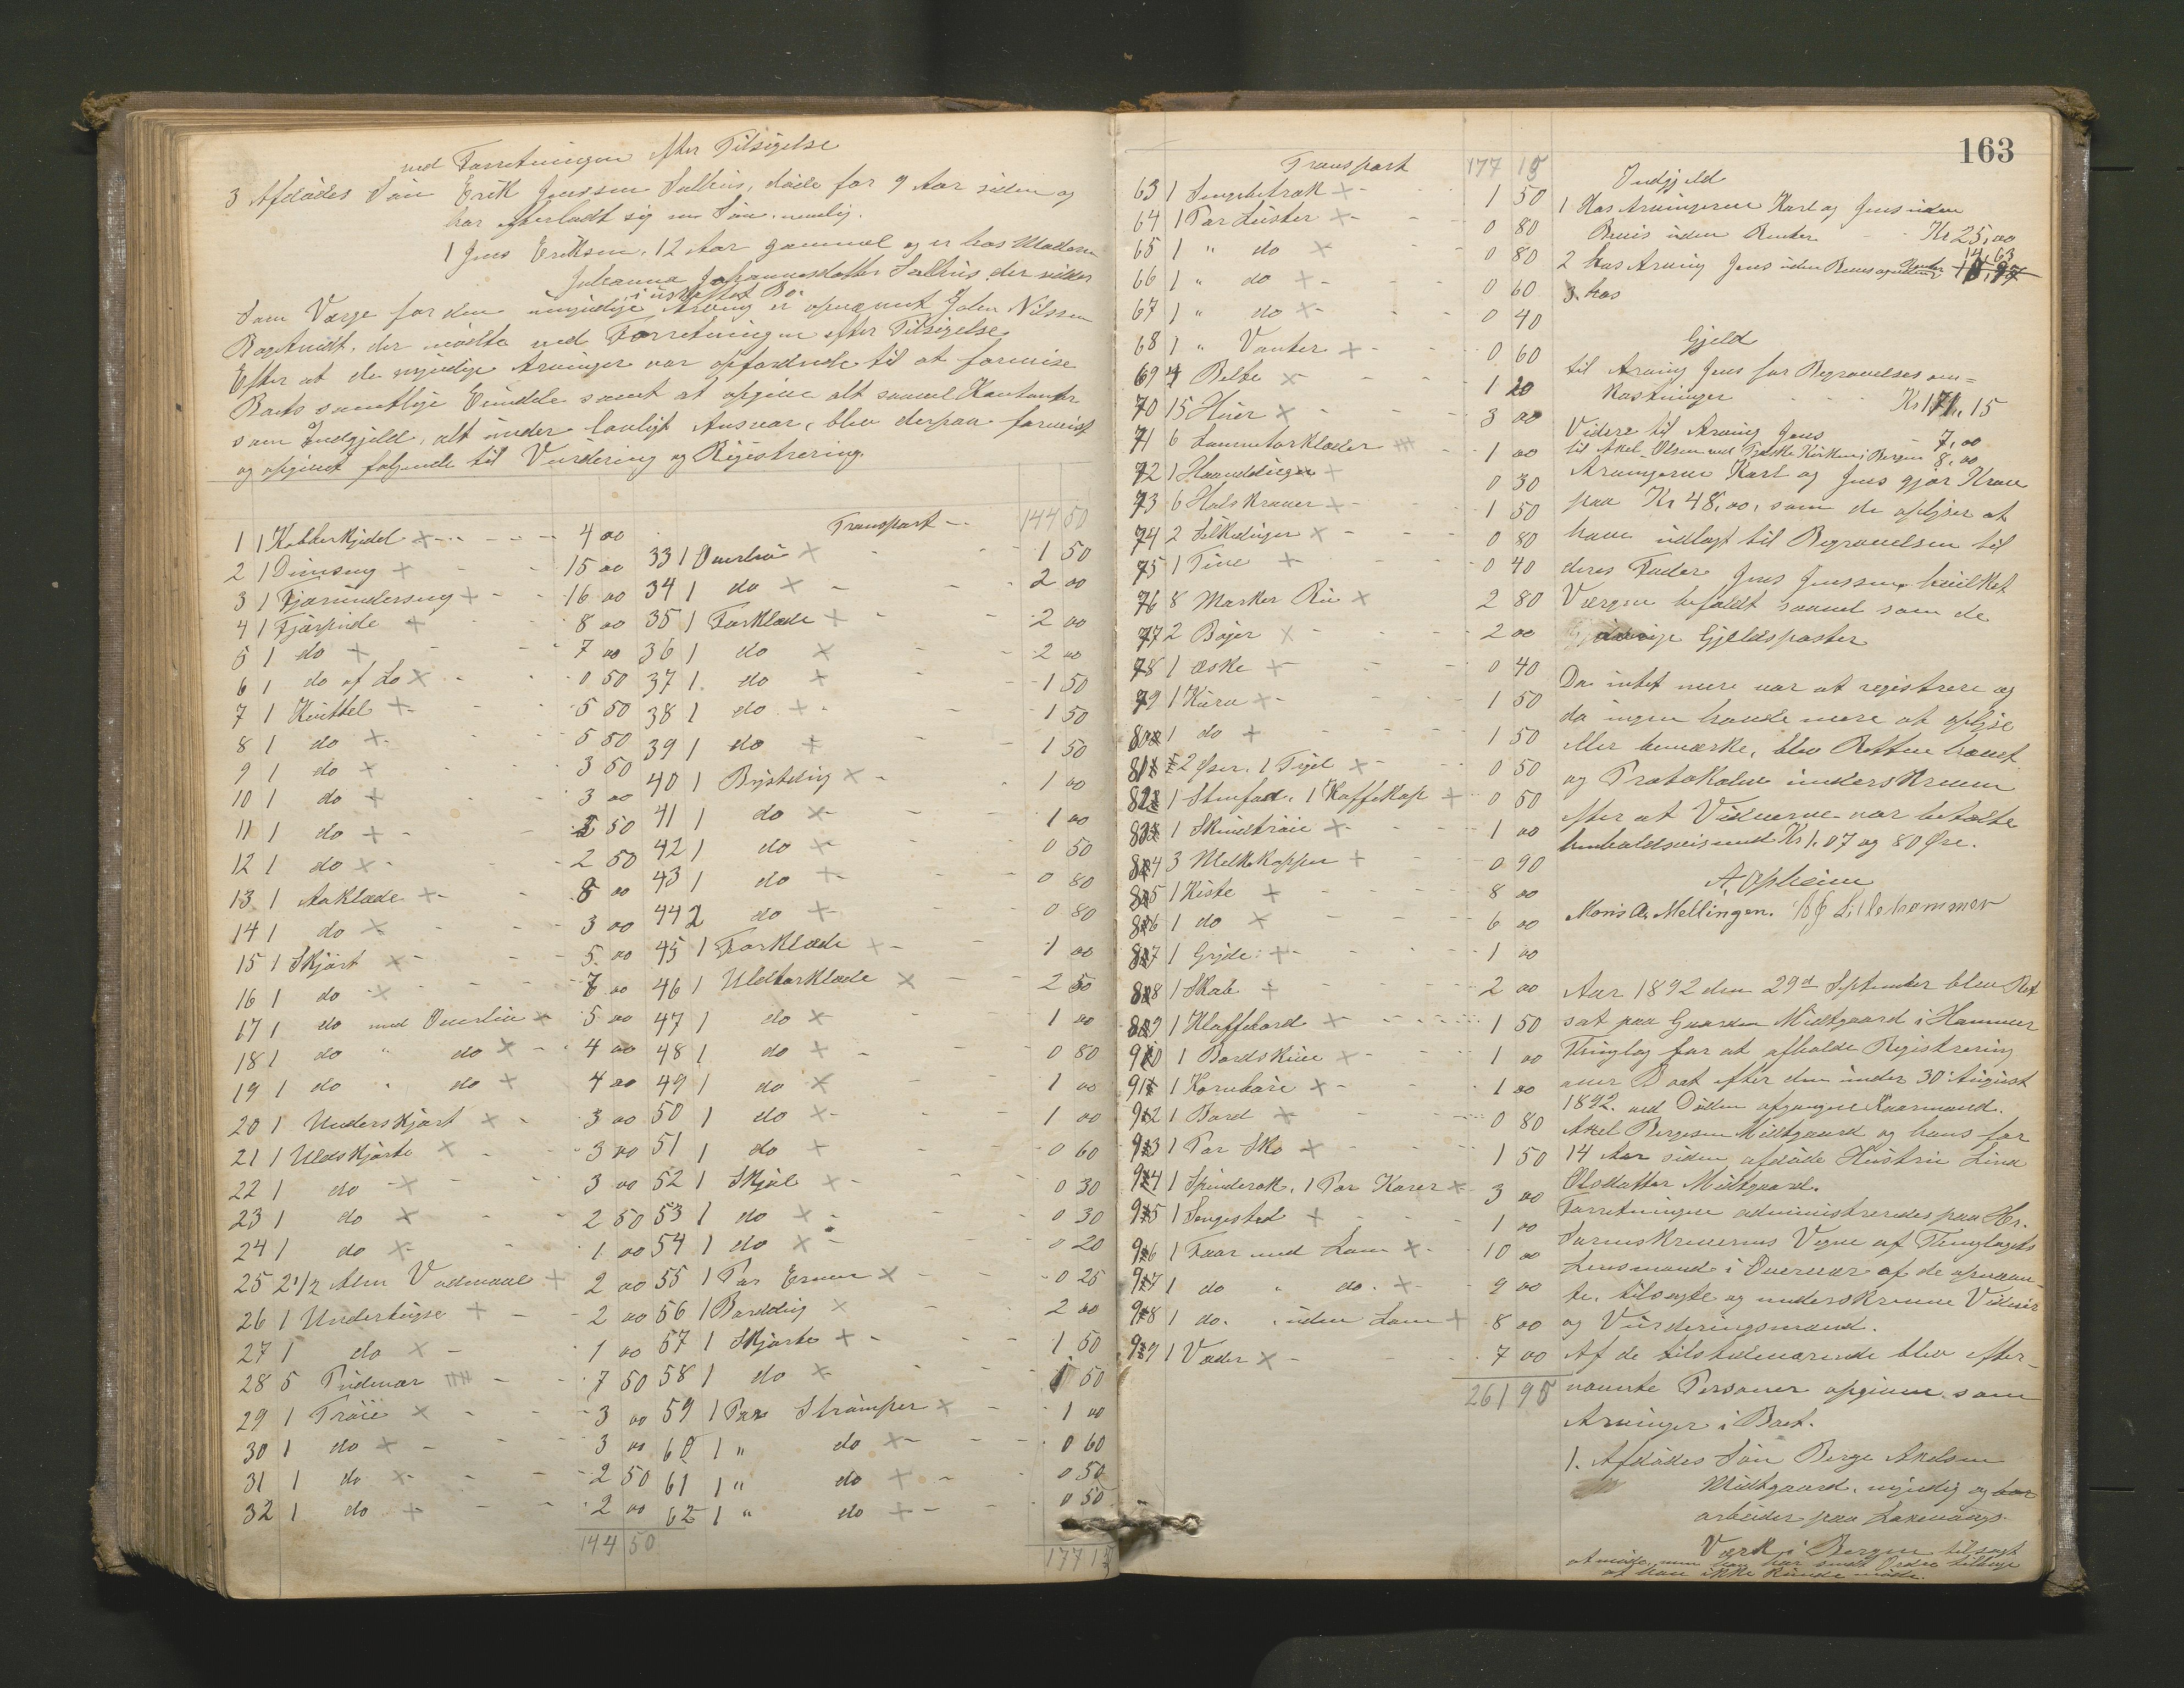 ved Forretningen efter Tilsigelse
3 Afdødes Søn Erik Jenssen Salhus, døde for 9 Aar siden og
har efterladt sig en Søn nemlig.
1 Jens Eriksen, 12 Aar gammel og er hos Moderen
Johanna Johannesdatter Salhus, der sidder
i uskiftet Bo.
Som Værge for den umyndige Arving er opnævnt John Nilssen
der mødte ved Forretningen efter Tilsigelse
Efter at de myndige Arvinger var opfordrede til at forevise
Boets samtlige Eiendele samt at opgive alt saavel Kontanter
som Indgjeld, alt under lovligt Ansvar, blev derpaa forevist
og opgivet følgende til Vurdering og Registrering.
1 1 Kobberkjedel 4 00
2 1 15 00
3 1 Fjærunderseng 16 00
4 1 Fjærpude 8 00
5 1 do 7 00
6 1 do af Lo 0 50
7 1 Kvittel 5 50
8 1 do 5 50
9 1 do 3 50
10 1 do 3 00
11 1 do 50
12 1 do 2 50
13 1 Aaklæde 8 00
14 1 do 3 00
15 1 Skjørt 5 00
16 1 do 7 00
17 1 do med Overliv 5 00
18 1 do " do 4 00
19 1 do " do 4 00
20 1 Underskjørt 3 00
21 1 Uldskjørte 3 00
22 1 do 3 00
23 1 do 2 50
24 1 do 1 00
25 2 1/2 Alen Vadmaal 2 00
26 1 Undertrøye 2 00
27 1 do 1 00
28 5 Pudevar 7 50
29 1 Trøie 3 00
30 1 do 3 00
31 1 do 2 50
32 1 do 2 00
144 50
Transport 144 50
33 1 Overliv 1 50
34 1 do 2 00
35 1 Forklæde 2 00
36 1 do 2 00
37 1 do 1 50
38 1 do 1 50
39 1 do 1 50
40 1 Brystdug 1 00
41 1 do 1 00
42 1 do 0 50
43 1 do 0 80
44 2 do 0 80
45 1 Forklæde 1 00
46 1 Uldtørklæde 2 50
47 1 do 1 00
48 1 do 0 80
49 1 do 1 00
50 1 do 1 00
51 1 do 0 60
52 1 Skjal 0 30
53 1 do 0 30
54 1 do 0 20
55 1 Par Ermer 0 25
56 1 Borddug 2 00
57 1 Skjorte 1 50
58 1 do 1 50
59 1 Par Strømper 1 00
60 1 " do 0 60
61 1 " do 0 50
62 1 " do 0 50
177 15
163
Transport 177 15
63 1 Sengebetræk 1 50
64 1 Par Lester 0 80
65 1 " do 0 80
66 1 " do 0 60
67 1 " do 0 40
68 1 " Vanter 0 60
69 4 Belte 1 20
70 15 Huer 3 00
71 6 Lommetørklæder 1 00
72 1 Haanddug 0 30
73 6 Halskraver 1 50
74 2 Silkeduger 0 80
75 1 Tine 0 40
76 8 Marker 2 80
77 2 Bøger 2 00
78 1 æske 0 40
79 1 Kurv 1 50
80 1 do 1 50
81 2 Øser, 1 0 50
82 1 Stenfad, 1 Kaffekop 0 50
83 1 Skindtrøie 1 00
84 3 Melkekopper 0 90
85 1 Kiste 8 00
86 1 do 6 00
87 1 Gryde 1 00
88 1 Skab 2 00
89 1 Klaffebord 1 50
90 1 1 00
91 1 1 00
92 1 Bord 0 80
93 1 Par Sko 1 50
94 1 Spinderok, 1 Par Karer 3 00
95 1 Sengested 1 00
96 1 Faar med Lam 10 00
97 1 do " do. 9 00
98 1 do. uden Lam 8 00
99 1 Væder 7 00
261 95
Indgjeld
1 Hos Arvingerne Karl og Jens uden
Bevis uden Renter Kr 25,00
2 hos Arving Jens uden Bevis og uden Renter 14,63
3 hos
Gjeld
til Arving Jens for Begravelsesom=
kostninger Kr 171,15
Videre til Arving Jens 7,00
til Axel Olsen ved Tydske Kirken i Bergen 8,00
Arvingerne Karl og Jens gjør Krav
paa Kr 48,00, som de oplyser at
have udlagt til Begravelsen til
deres Fader Jens Jenssen, hvilket
Værgen befaldt saavel som de
øvrige Gjeldsposter
Da intet mere var at registrere og
da ingen havde mere at oplyse
eller bemærke, blev Retten hævet
og Protokolen underskreven
efter at Vidnerne var betalte
henholdsvis med Kr 1.07 og 80 Øre.
A. Opheim
Mons A. Mellingen. Lillehammer
Aar 1892 den 29de September blev Ret
sat paa Gaarden Midtgaard i Hammer
Thinglag for at afholde Registrering
over Boet efter den under 30 August
1892 ved Døden afgangne Kaarmand
Axel Bergesen Midtgaard og hans for
14 Aar siden afdøde Hustru Lina
Olsdatter Midtgaard.
Forretningen administreredes paa Hr.
Sorenskriverens Vegne af Thinglagets
Lensmand i Overvær af de opnævn-
te, tilsagte og underskrevne Vidner
og Vurderingsmænd.
Af de tilstedeværende blev efter-
nævnte Personer opgivne som
Arvinger i Boet.
1. Afdødes Søn Berge Axelsen
Midtgaard, myndig og
arbeider paa Laxevaags
Værk i Bergen tilsagt
at møde, men han har sendt Ordre tilbage
at han ikke kunde møde.